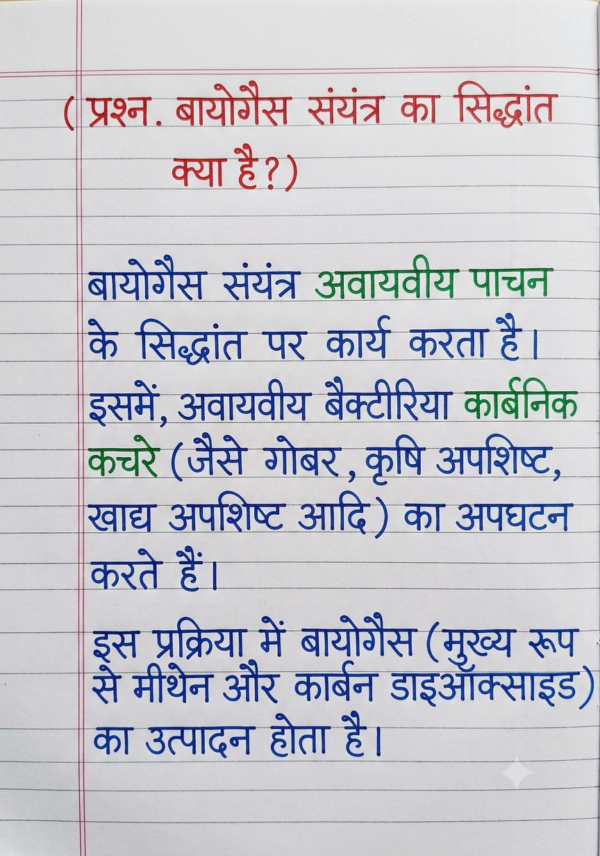 ( प्रश्न. बायोगैस संयंत्र का सिद्धांत
क्या है?)
बायोगैस संयंत्र अवायवीय पाचन
के सिद्धांत पर कार्य करता है।
इसमें, अवायवीय बैक्टीरिया कार्बनिक
कचरे (जैसे गोबर, कृषि अपशिष्ट,
खाद्य अपशिष्ट आदि) का अपघटन
करते हैं।
इस प्रक्रिया में बायोगैस (मुख्य रूप
से मीथेन और कार्बन डाइऑक्साइड)
का उत्पादन होता है।